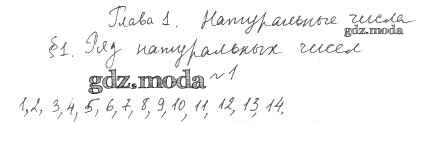 Глава 1. Натуральные числа
gdz.moda
§1. Ряд натуральных чисел
gdz.moda ~1
1,2, 3,4, 5, 6, 7, 8, 9, 10, 11, 12, 13, 14.